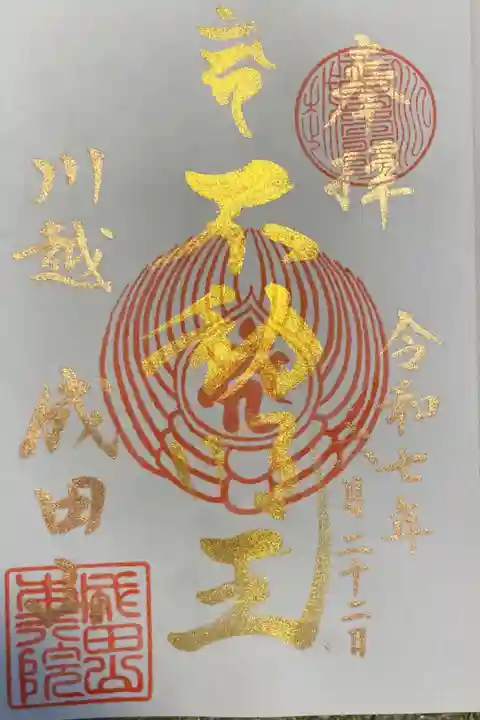 奉拝
令和七年
八月二十二日
不動明王
川越 成田山
成田山
本行院